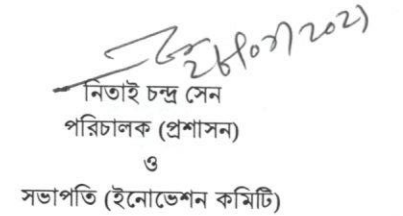 নিতাই চন্দ্র সেন
পরিচালক (প্রশাসন)
ও
সভাপতি (ইনোভেশন কমিটি)